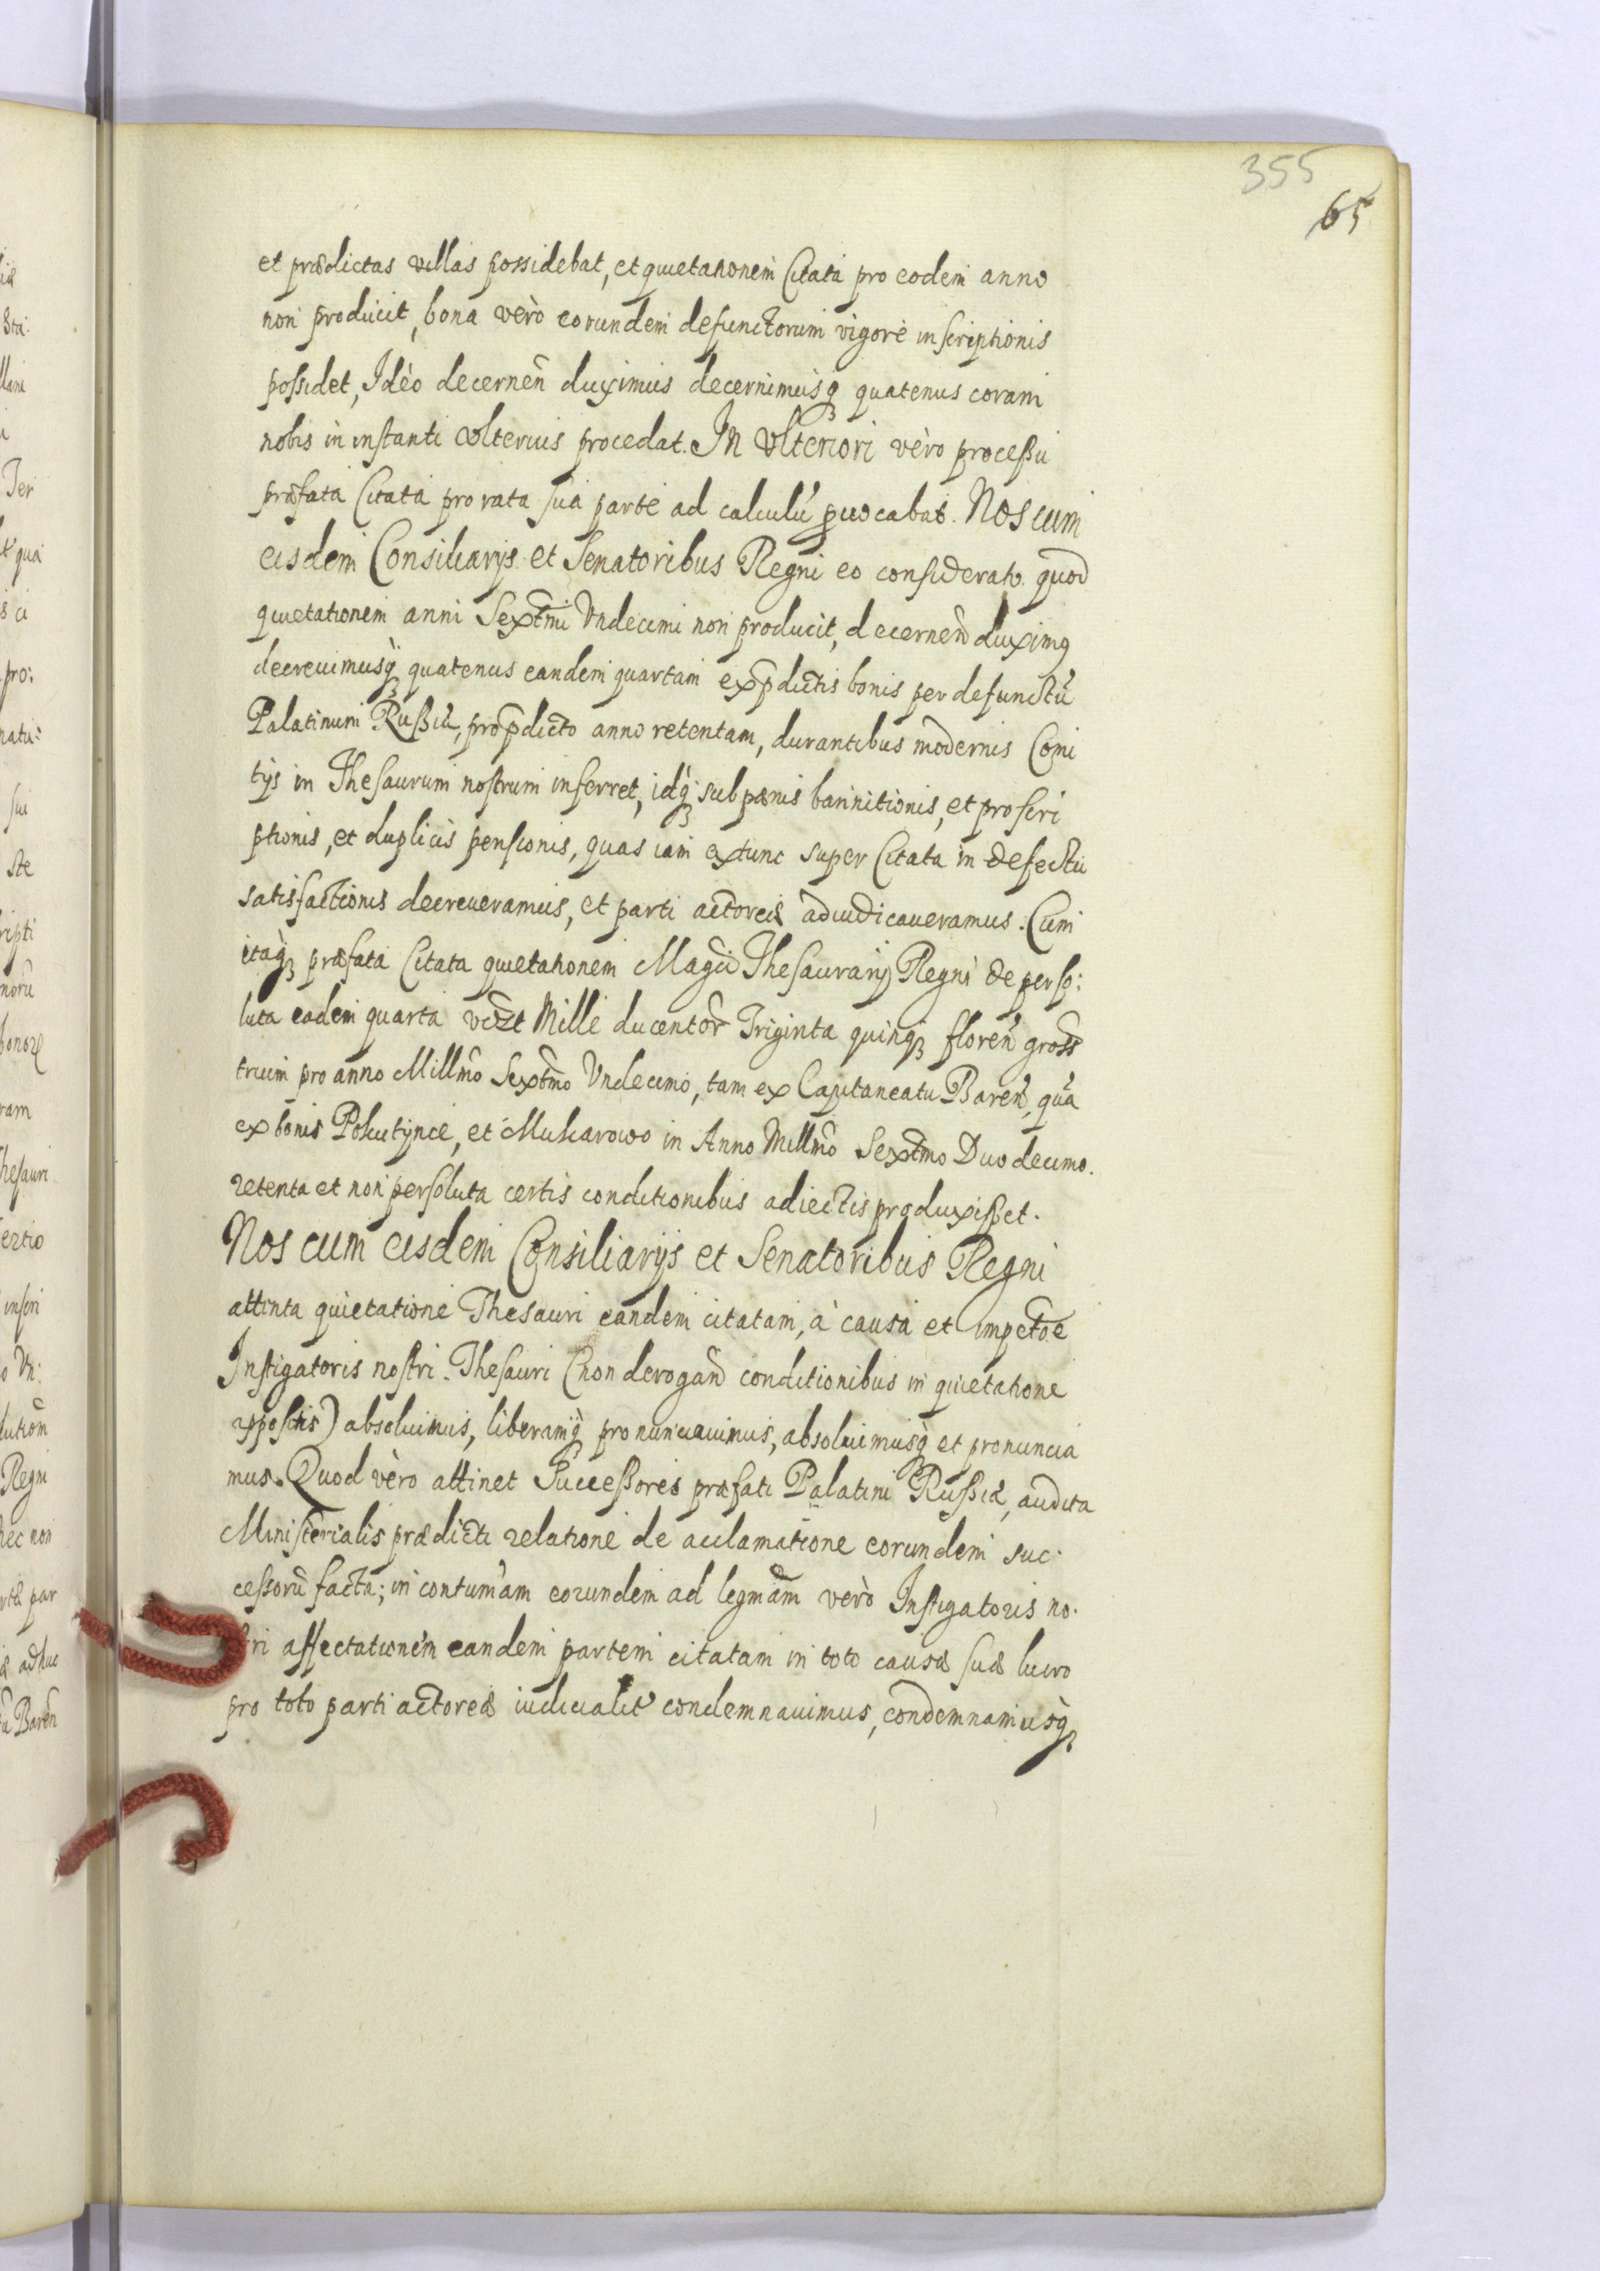 355
65
et prædictas villas possidebat, et quietationem Citata pro eodem anno
non producit, bona verò eorundem defunctorum vigore inscriptionis
possidet, Idèo decernen̄ duximus decernimusq́ꝫ quatenus coram
nobis in instanti vlterius procedat. In vlteriori vèro processu
præfata Citata pro rata sua parte ad calculū prouocabat. Nos cum
eisdem Consiliarijs et Senatoribus Regni eo considerato quod
quietationem anni Sexct̄mi Vndecimi non producit, decernen̄d duximꝰ
decreuimusq́ꝫ quatenus eandem quartam ex p̄dictis bonis per defunctū
Palatinum Russiæ, pro p̄dicto anno retentam, durantibus modernis Comi
tijs in Thesaurum nostrum inferret, idq́ꝫ sub pænis bannitionis, et proscri
ptionis, et duplicis pensionis, quas iam extunc super Citata in defectu
satisfactionis decreueramus, et parti actoreæ adiudicaueramus. Cum
itaq́ꝫ præfata Citata quietationem Mag̃ci Thesaurarij Regni de perso:
luta eadem quarta vid̃zt Mille ducentor̃ Triginta quinqꝫ floren̄ gross̃
trium pro anno Millm̃o Sexctm̃o Vndecimo, tam ex Capitaneatu Baren̄, quā
ex bonis Pokutynce, et Mukarowo in Anno Millm̃o Sexctm̃o Duodecimo.
retenta et non persoluta certis conditionibus adiectis produxisset.
Nos cum eisdem Consiliarijs et Senatoribus Regni
attenta quietatione Thesauri eandem citatam, à causa et impetõe
Instigatoris nostri Thesauri (non derogan̄d conditionibus in quietatione
appositis) absoluimus, liberamq́ꝫ pronunciauimus, absoluimusq́ꝫ et pronuncia
mus. Quod vèro attinet Successores præfati Palatini Russiæ, audita
Ministerialis prædicti relatione de acclamatione eorundem suc:
cessorū facta; in contum̃am eorundem ad legm̃am verò Instigatoris no:
stri affectationem eandem partem citatam in toto causæ suæ lucro
pro toto parti actoreæ iudicialit̃ condemnauimus, condemnamusq́ꝫ